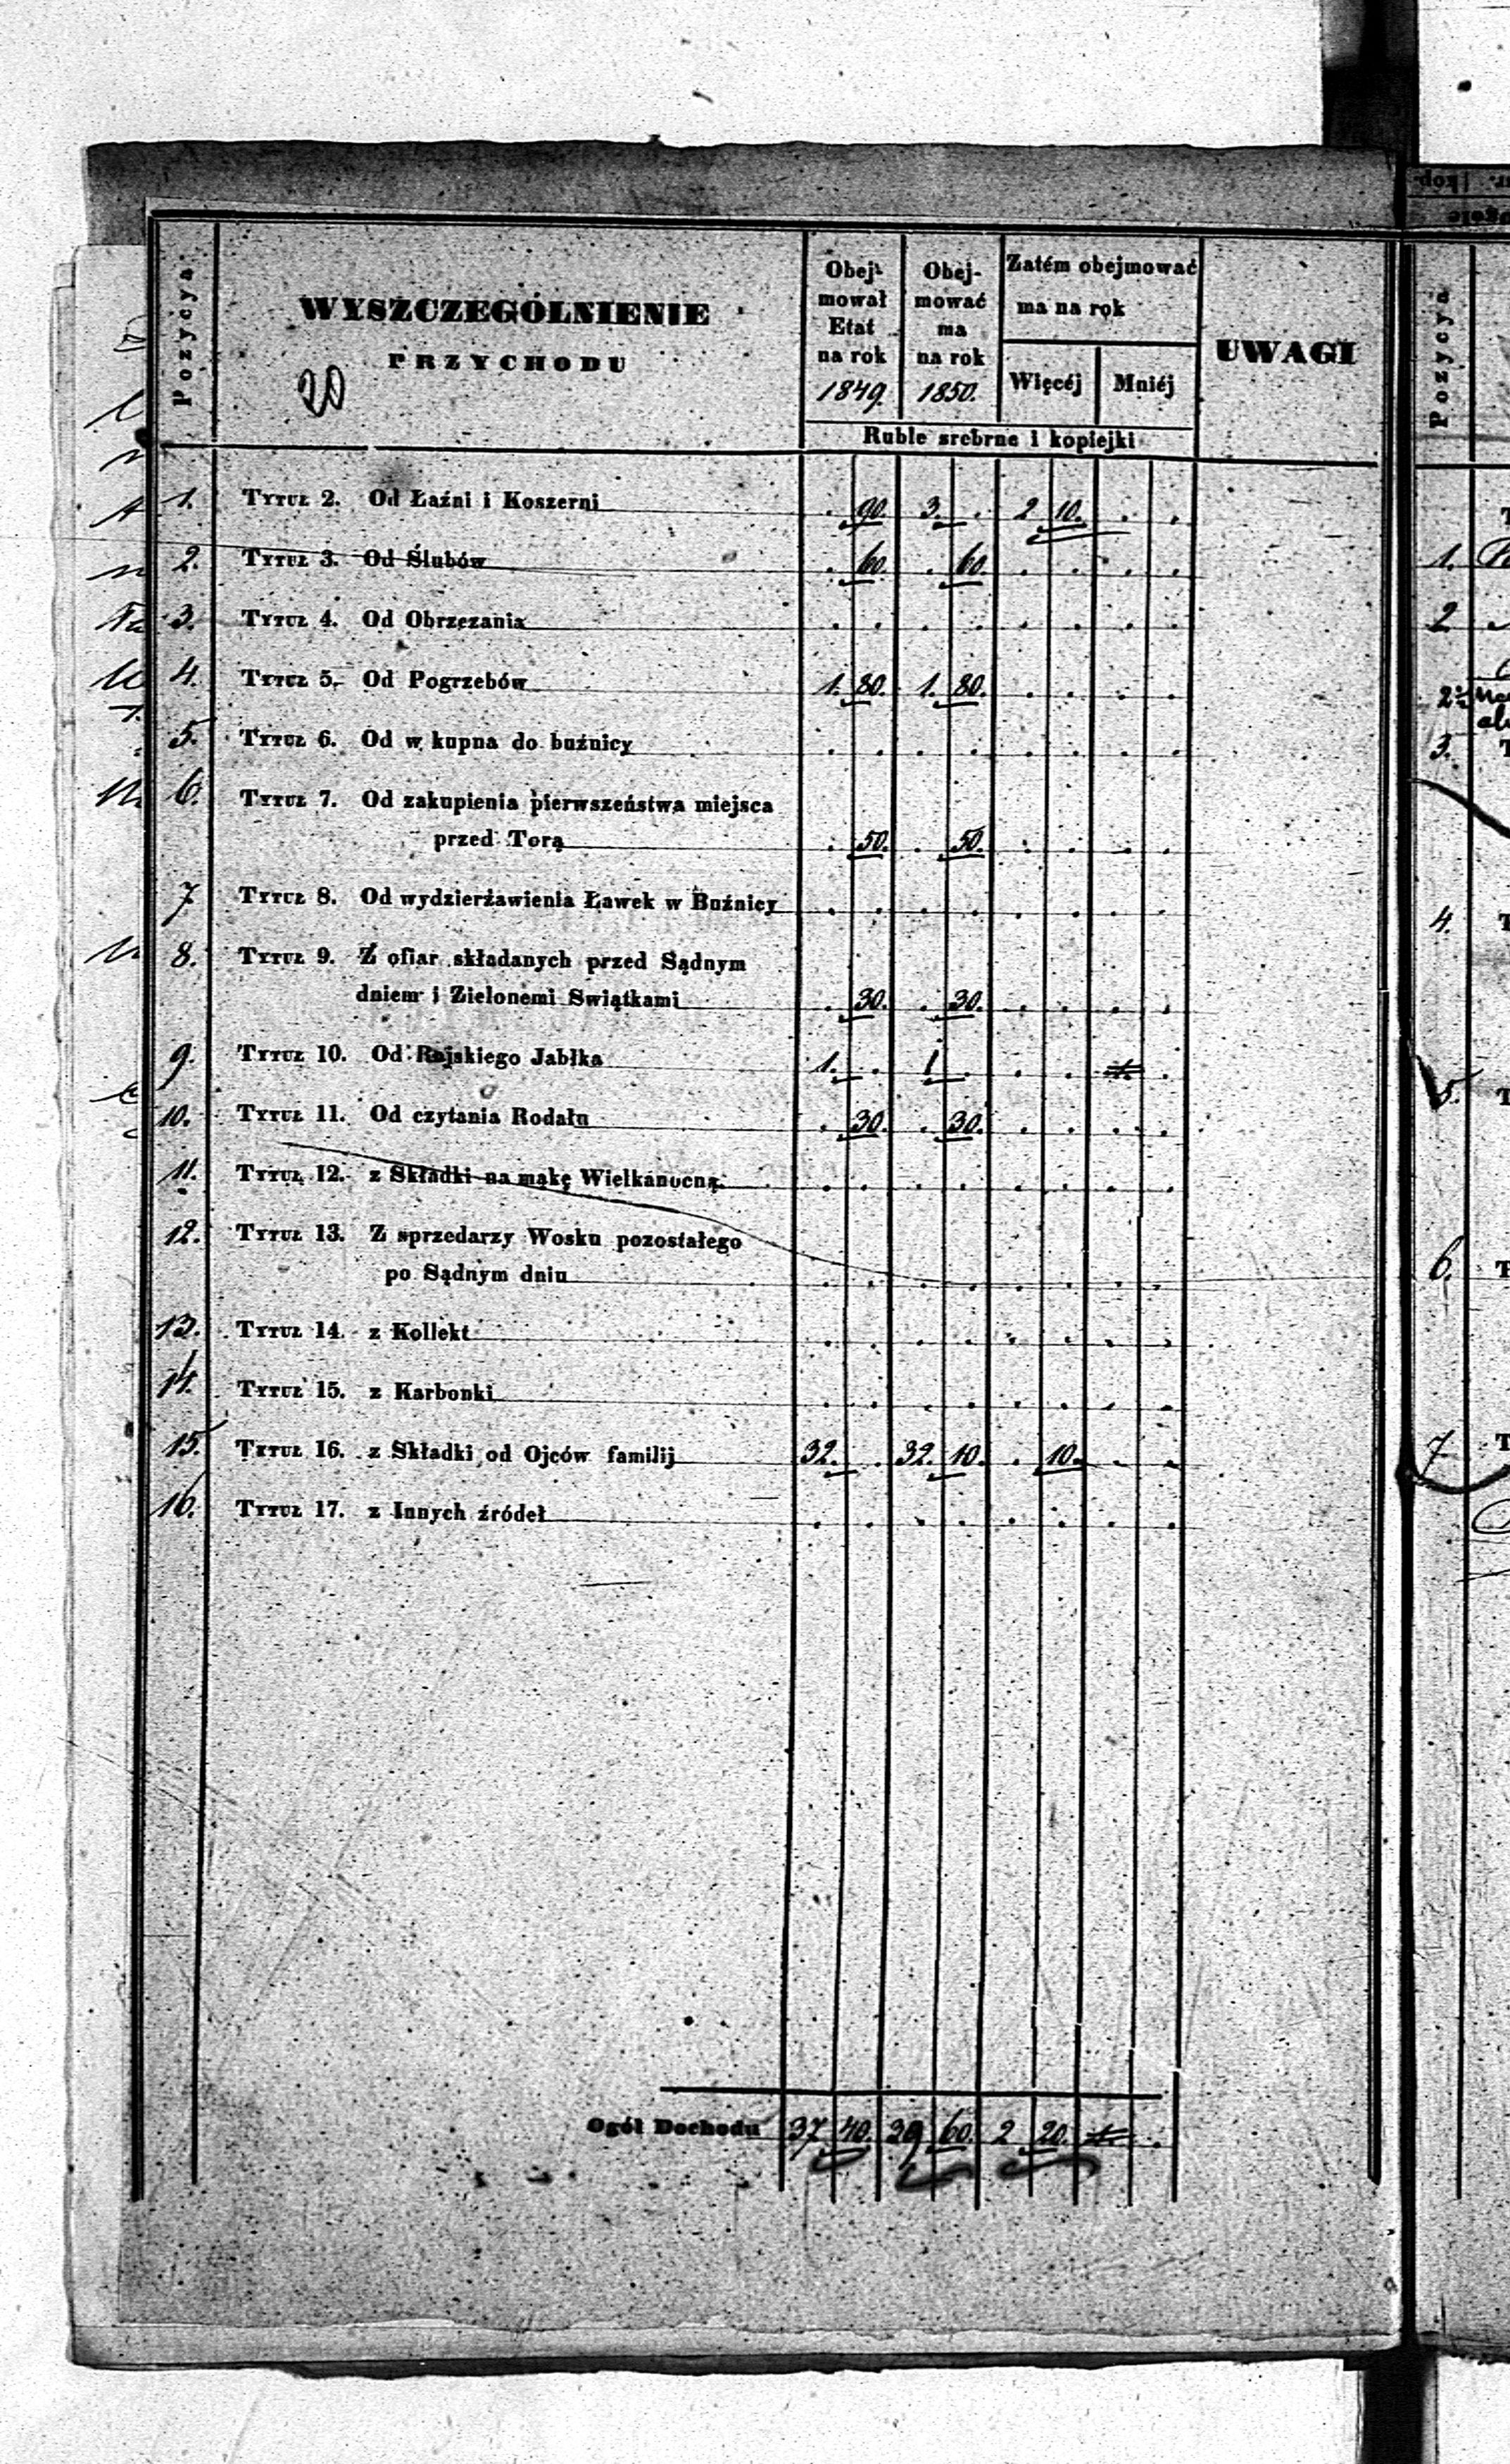 Pozycya
WYSZCZEGÓLNIENIE
PRZYCHODU
20
Obej-
mował
Etat
na rok
1849.
Obej-
mować
ma
na rok
1850.
Zatém obejmować
ma na rok
Więcéj
Mniéj
UWAGI
Ruble srebrne i kopiejki
1. Tytuł 2. Od Łaźni i Koszerni . 90. 3. . 2 10. . .
2. Tytuł 3. Od Ślubów . 60. . 60. . . . .
3. Tytuł 4. Od Obrzezania . . . . . . . .
4. Tytuł 5. Od Pogrzebów 1. 80. 1. 80. . . . .
5. Tytuł 6. Od w kupna do buźnicy . . . . . . . .
6. Tytuł 7. Od zakupienia pierwszeństwa miejsca
przed Torą . 50. . 50. . . . .
7 Tytuł 8. Od wydzierżawienia Ławek w Buźnicy . . . . . . . .
8. Tytuł 9. Z ofiar składanych przed Sądnym
dniem i Zielonemi Swiątkami . 30. . 30. . . . .
9. Tytuł 10. Od Rajskiego Jabłka 1. . 1 . . . 1. .
10. Tytuł 11. Od czytania Rodału . 30. . 30. . . . .
11. Tytuł 12. z Składki na mąkę Wielkanocną . . . . . . . .
12. Tytuł 13. Z sprzedarzy Wosku pozostałego
po Sądnym dniu . . . . . . . .
13. Tytuł 14. z Kollekt . . . . . . . .
14. Tytuł 15. z Karbonki . . . . . . . .
15. Tytuł 16. z Składki od Ojców familij 32. . 32. 10. . 10. . .
16. Tytuł 17. z Innych źródeł . . . . . . . .
Ogół Dochodu 37 40. 39 60. 2 20. 1. .
Pozycya
1.
2
3.
4.
5.
6.
7